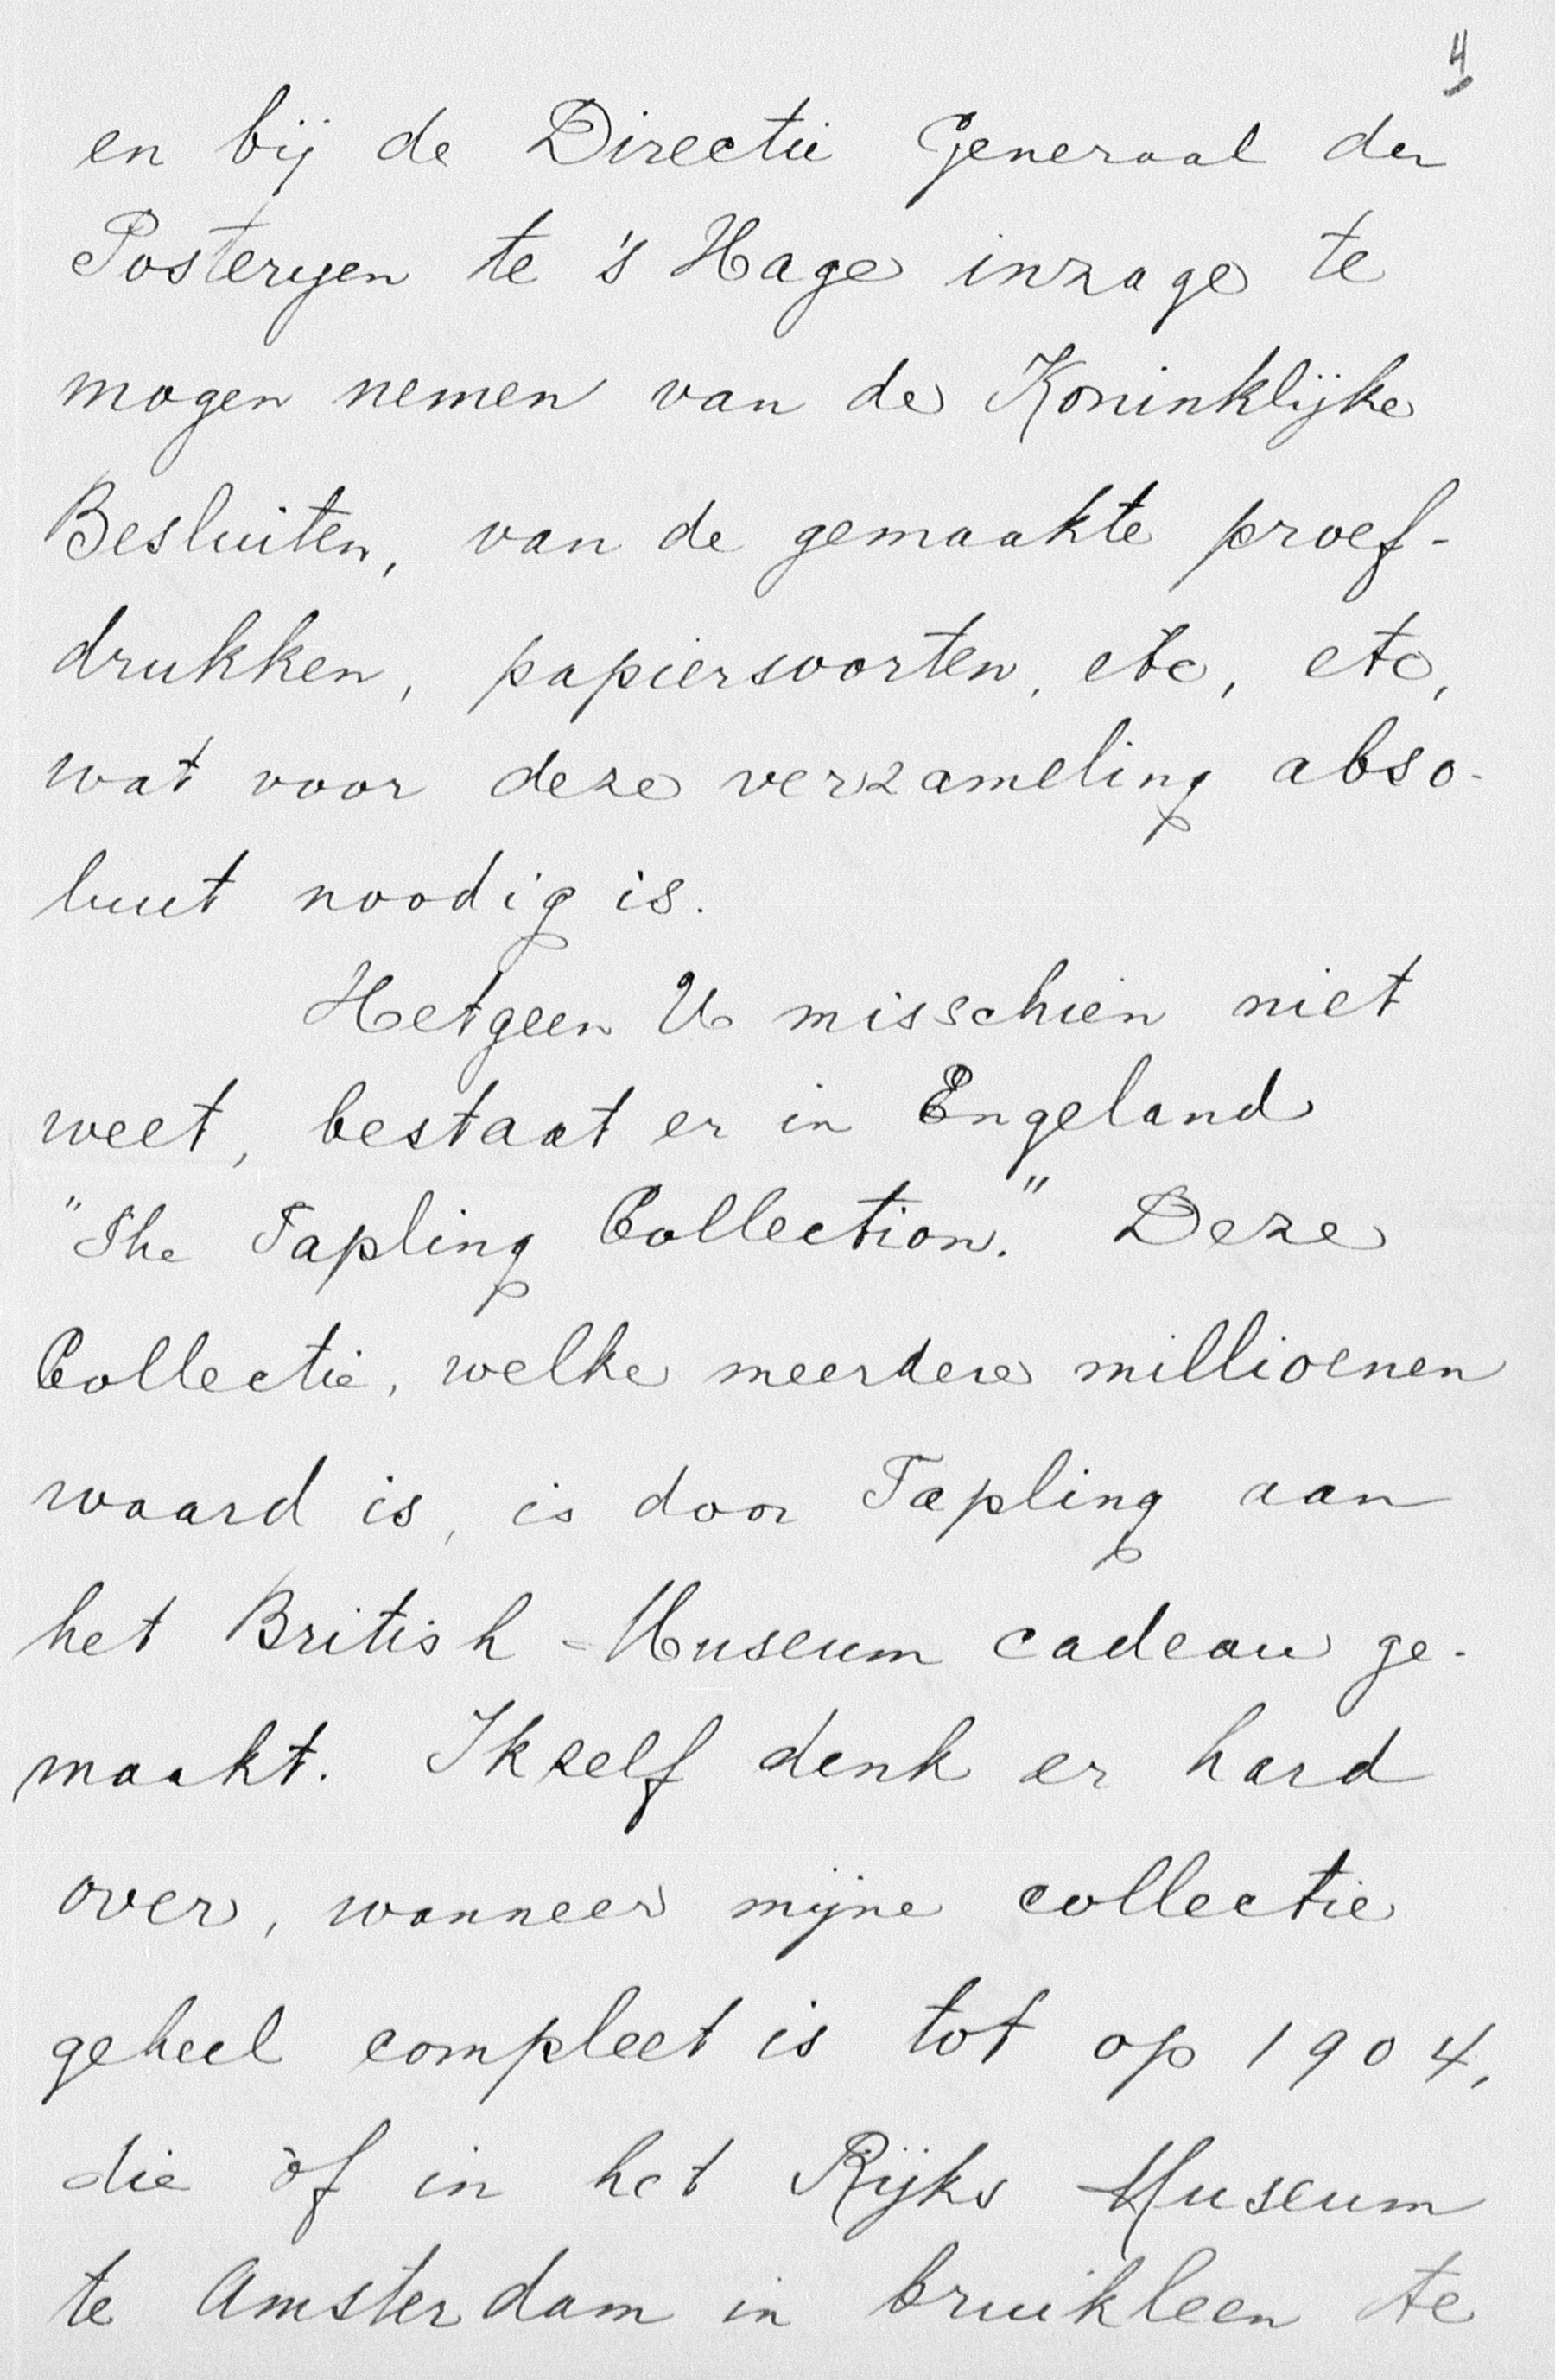 4
en bij de Directie Generaal der
Posteryen te 's Hage inzage te
mogen nemen van de Koninklijke
Besluiten, van de gemaakte proef-
drukken, papiersoorten, etc, etc,
wat voor deze verzameling abso-
luut noodig is.
Hetgeen U misschien niet
weet, bestaat er in Engeland
"The Tapling Collection." Deze
Collectie, welke meerdere millioenen
waard is, is door Tapling aan
het British-Museum cadeau ge-
maakt. Ikzelf denk er hard
over, wanneer mijne collectie
geheel compleet is tot op 1904,
die òf in het Rijks Museum
te Amsterdam in bruikleen te